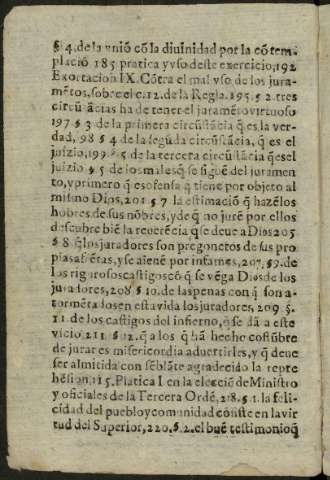 § 4. de la unió cõ la diuinidad por la cõtem
plació 185. pratica y vso deste exercicio, 192
Exortacion IX. Cõtra el mal vso de los jura-
mẽtos, sobre el c. 12. de la Regla. 195. § 2. tres
circũstãcias ha de tener el juramẽto virtuoso
197 § 3 de la primera circũstãcia q̃ es la ver-
dad, 198 § 4 de la segũda circũstãcia, q̃ es el
juizio, 199. § 5 de la tercera circũstãcia q̃ es el
juizio § 5 de los males q̃ se siguẽ del juramen
to, y primero q̃ es ofensa q̃ tiene por objeto al
mismo Dios, 201 § 7 la estimació q̃ hazẽ los
hobres de sus nõbres, y de q̃ no jurẽ por ellos
descubre biẽ la reuerẽcia q̃ se deue a Dios 205
§ 8 q̃ los juradores son pregoneros de sus pro
pias afrẽtas, y se tienẽ por infames, 207. § 9. de
los rigurosos castigos cõ q̃ se vẽga Dios de los
juradores, 208 § 10. de las penas con q̃ son a-
tormẽtados en esta vida los juradores, 209 §.
11. de los castigos del infierno, q̃ se dã a este
vicio 211 § 12. q̃ a los q̃ hã hecho costũbre
de jurar es misericordia aduertirles, y q̃ deue
ser almitida con sẽblãte agradecido la repre
hẽsion, 215. Platica I en la elecció de Ministro
y oficiales de la Tercera Ordẽ, 218. § 1. la feli-
cidad del pueblo y comunidad cõsiste en la vir
tud del Superior, 220. § 2. el buẽ testimonio q̃